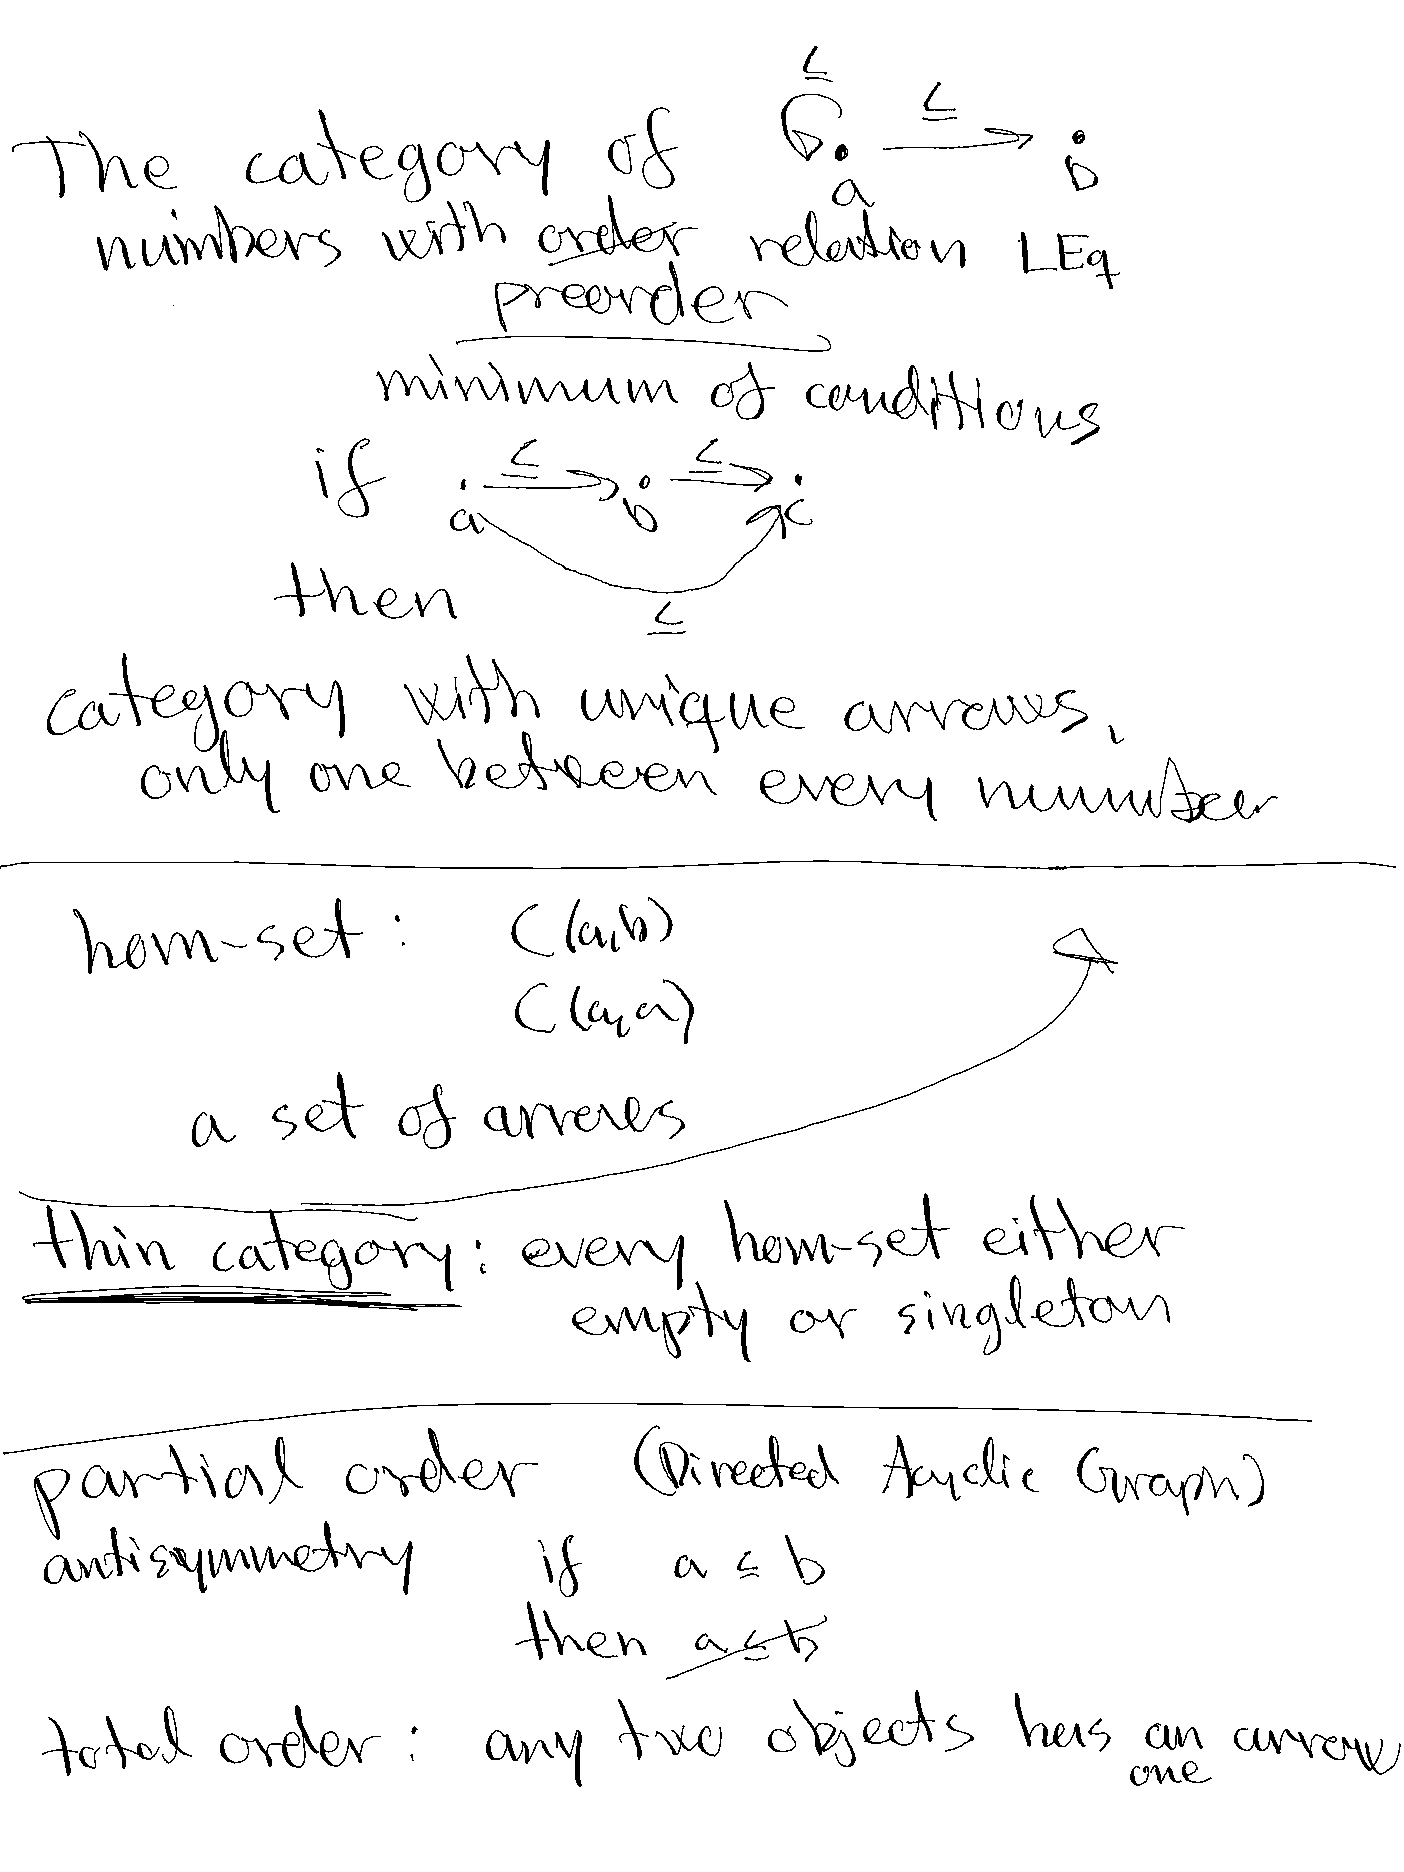 ≤
≤
The category of
a b
numbers with order relation LEq
preorder
minimum of conditions
if ≤ ≤
a b c
then
≤
category with unique arrows,
only one between every number
hom-set: C(a,b)
C(a,a)
a set of arrows
thin category: every hom-set either
empty or singleton
partial order (Directed Acyclic Graph)
antisymmetry if a ≤ b
then a ≤ b
total order: any two objects has an arrow
one